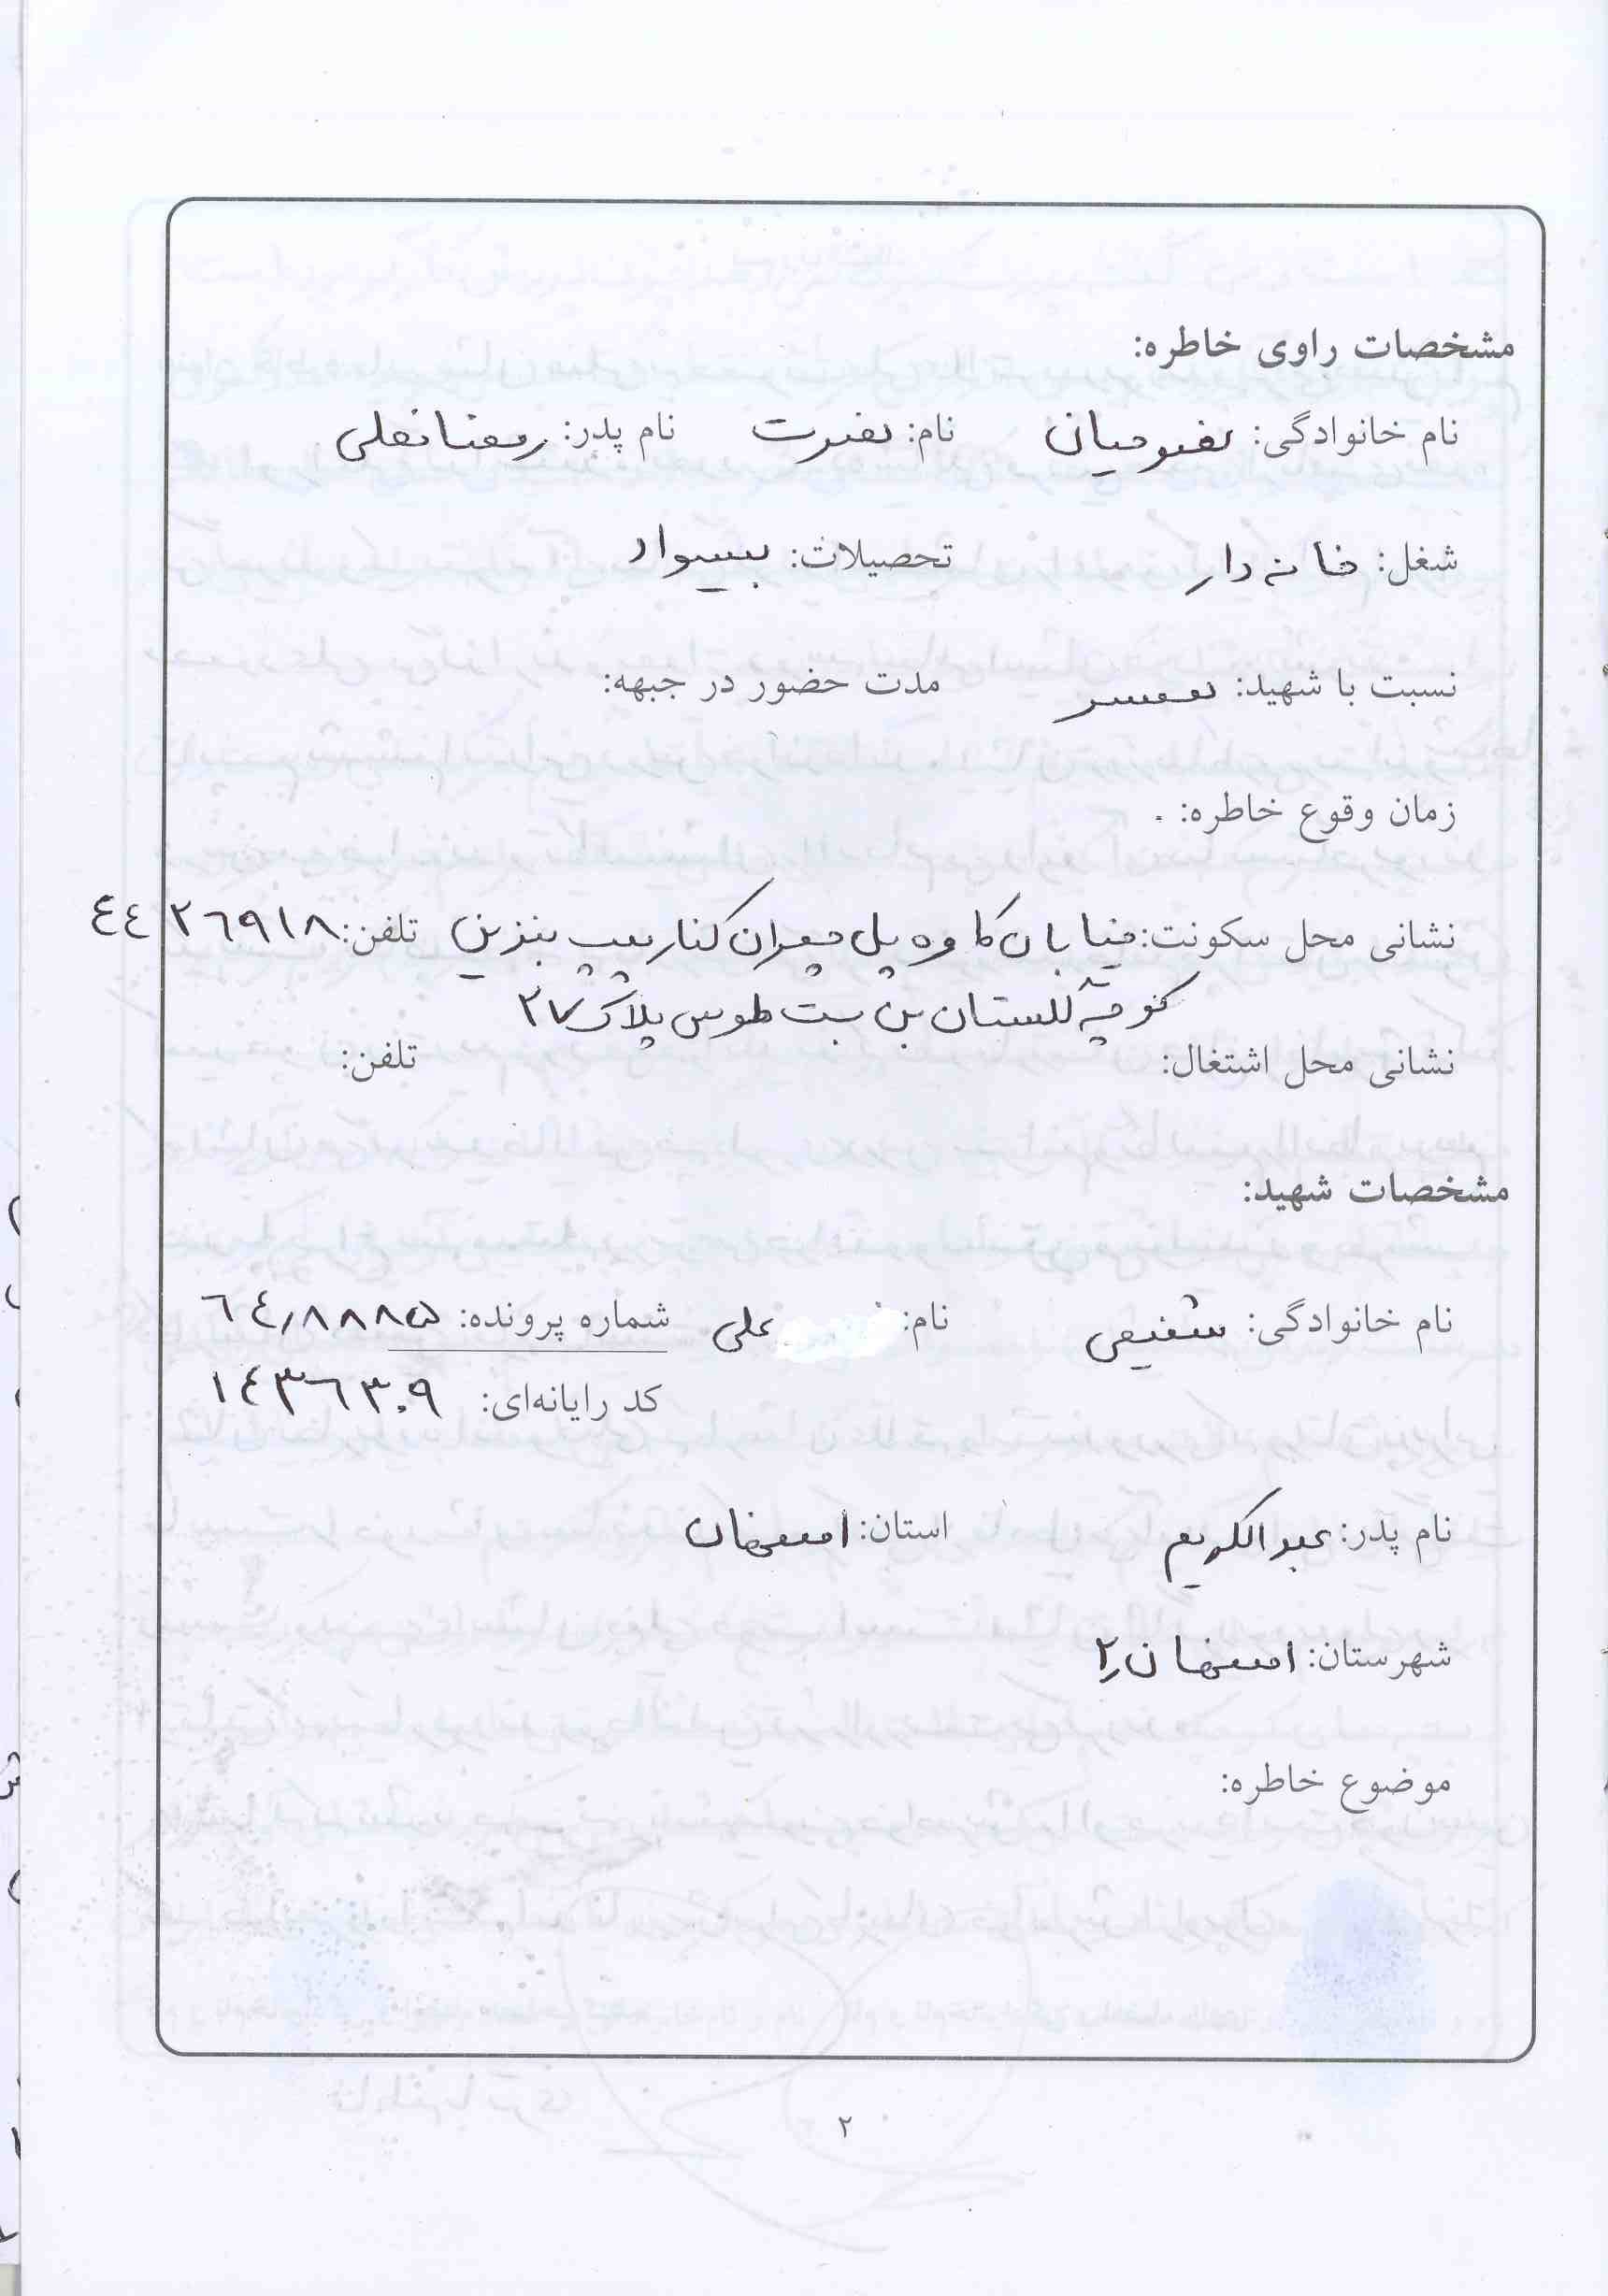 مشخصات راوی خاطره:
نام خانوادگی: نصوحیان نام: نصرت نام پدر: رمضانعلی
شغل: خانه دار تحصیلات: بیسواد
نسبت با شهید: همسر مدت حضور در جبهه:
زمان وقوع خاطره:
نشانی محل سکونت: خیابان کاوه پل چمران کنار پمپ بنزین تلفن: ٤٤٢٦٩١٨
کوچه گلستان بن بست طوس پلاک ٢٧
نشانی محل اشتغال: تلفن:
مشخصات شهید:
نام خانوادگی: شفیعی نام: علی شماره پرونده: ٦٤٫٨٨٨٥
کد رایانه‌ای: ١٤٣٦٣٠٩
نام پدر: عبدالکریم استان: اصفهان
شهرستان: اصفهان ٢
موضوع خاطره:
٢